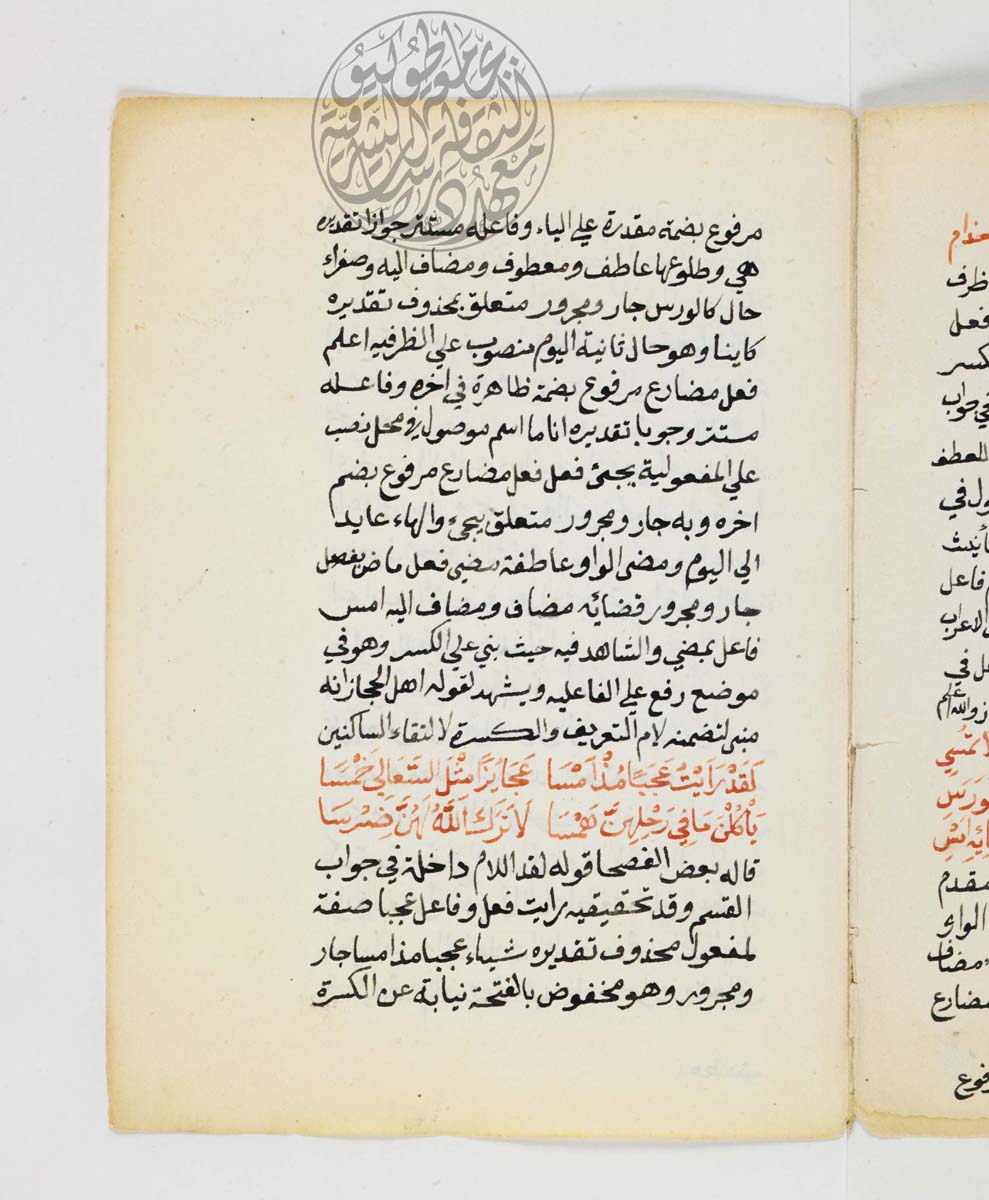 مرفوع بضمة مقدرة علي الياء وفاعله مستتر جوازا تقديره
هي وطلوعها عاطف ومعطوف ومضاف اليه وصفراء
حال كالورس جار ومجرور متعلق بمحذوف تقديره
كاينا وهو حال ثانية اليوم منصوب علي الظرفيه اعلم
فعل مضارع مرفوع بضمة ظاهرة في اخره وفاعله
مستتر وجوبا تقديره انا ما اسم موصول في محل نصب
علي المفعولية يجئ فعل فعل مضارع مرفوع بضم
اخره وبه جار ومجرور متعلق بيجئ والهاء عايد
الي اليوم ومضي الواو عاطفة مضي فعل ماض بفصل
جار ومجرور قضائه مضاف ومضاف اليه امس
فاعل بمضي والشاهد فيه حيث بني علي الكسر وهو في
موضع رفع علي الفاعليه ويشهد لقوله اهل الحجاز انه
مبني لتضمنه لام التعريف والكسرة لالتقاء الساكنين
لَقَدْ رَايْتُ عَجَبًا مُذْ امْسَا عَجَايزًا مِثْلَ السَّعَالِي خَمْسَا
يَأْكُلْنَ مَا فِي رَحْلِهِنَّ هَمْسَا لَا تَرَكَ اللَّهُ لَهُنَّ ضِرْسَا
قاله بعض الفصحا قوله لقد اللام داخلة في جواب
القسم وقد تحقيقيه رايت فعل وفاعل عجبا صفة
لمفعول محذوف تقديره شيباء عجبا مذ امسا جار
ومجرور وهو مخفوض بالفتحة نيابة عن الكسرة
جامعة طوكيو
معهد دراسات الثقافة الشرقية
ظرف
فعل
كسر
في جواب
للعطف
ول في
تأنيث
فاعل
الاعراب
ل في
والله اعلم
مقدم
الواو
مضاف
مضارع
فوع